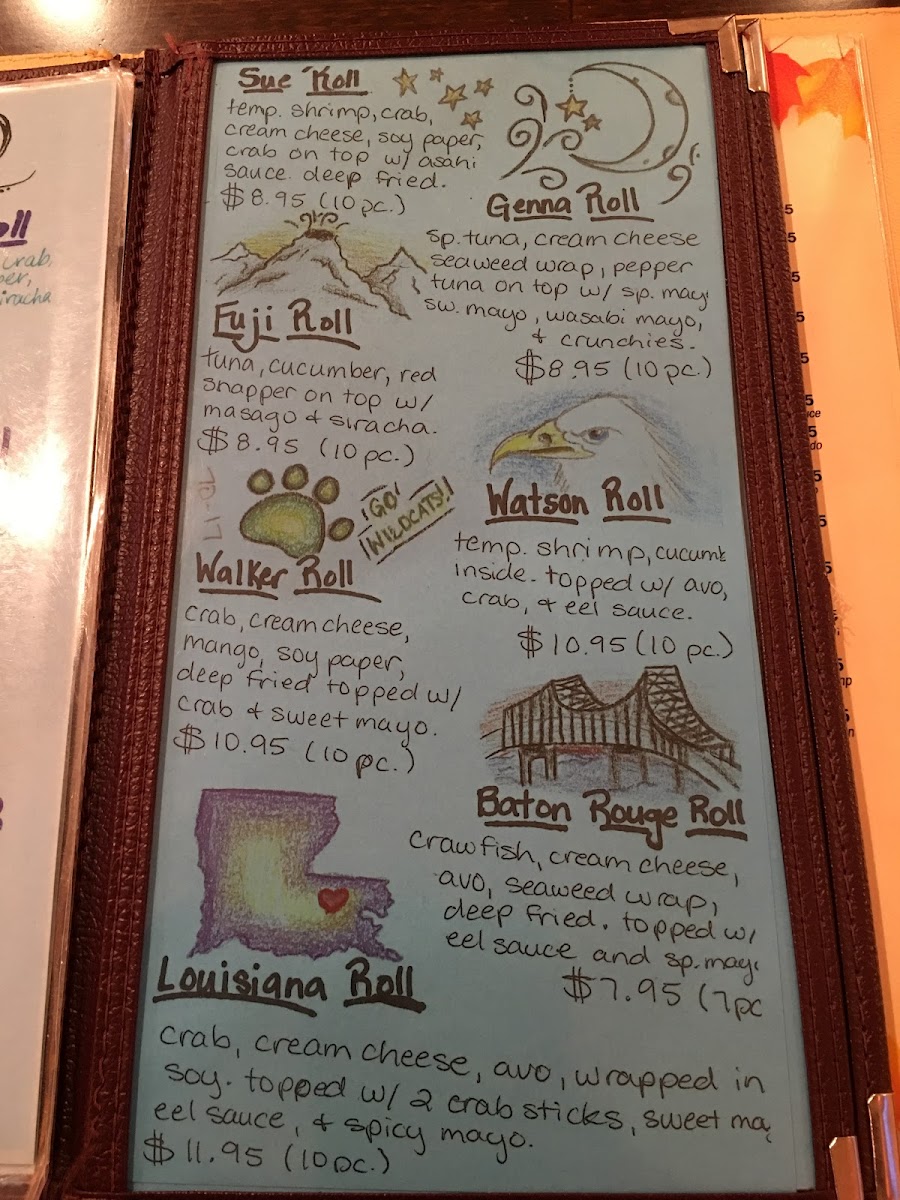 Sue Roll
temp. shrimp, crab,
cream cheese, soy paper,
crab on top w/ asahi
sauce. deep fried.
$8.95 (10 pc.)
Genna Roll
sp. tuna, cream cheese
seaweed wrap, pepper
tuna on top w/ sp. may
sw. mayo, wasabi mayo,
& crunchies.
$8.95 (10 pc.)
Fuji Roll
tuna, cucumber, red
snapper on top w/
masago & siracha.
$8.95 (10 pc.)
Watson Roll
temp. shrimp, cucumb
inside. topped w/ avo,
crab, & eel sauce.
$10.95 (10 pc.)
GO
WILDCATS!!
Walker Roll
crab, cream cheese,
mango, soy paper,
deep fried topped w/
crab & sweet mayo.
$10.95 (10 pc.)
Baton Rouge Roll
crawfish, cream cheese,
avo, seaweed wrap,
deep fried. topped w/
eel sauce and sp. may
$7.95 (7pc
Louisiana Roll
crab, cream cheese, avo, wrapped in
soy. topped w/ 2 crab sticks, sweet ma
eel sauce, & spicy mayo.
$11.95 (10 pc.)
oll
crab,
iracha